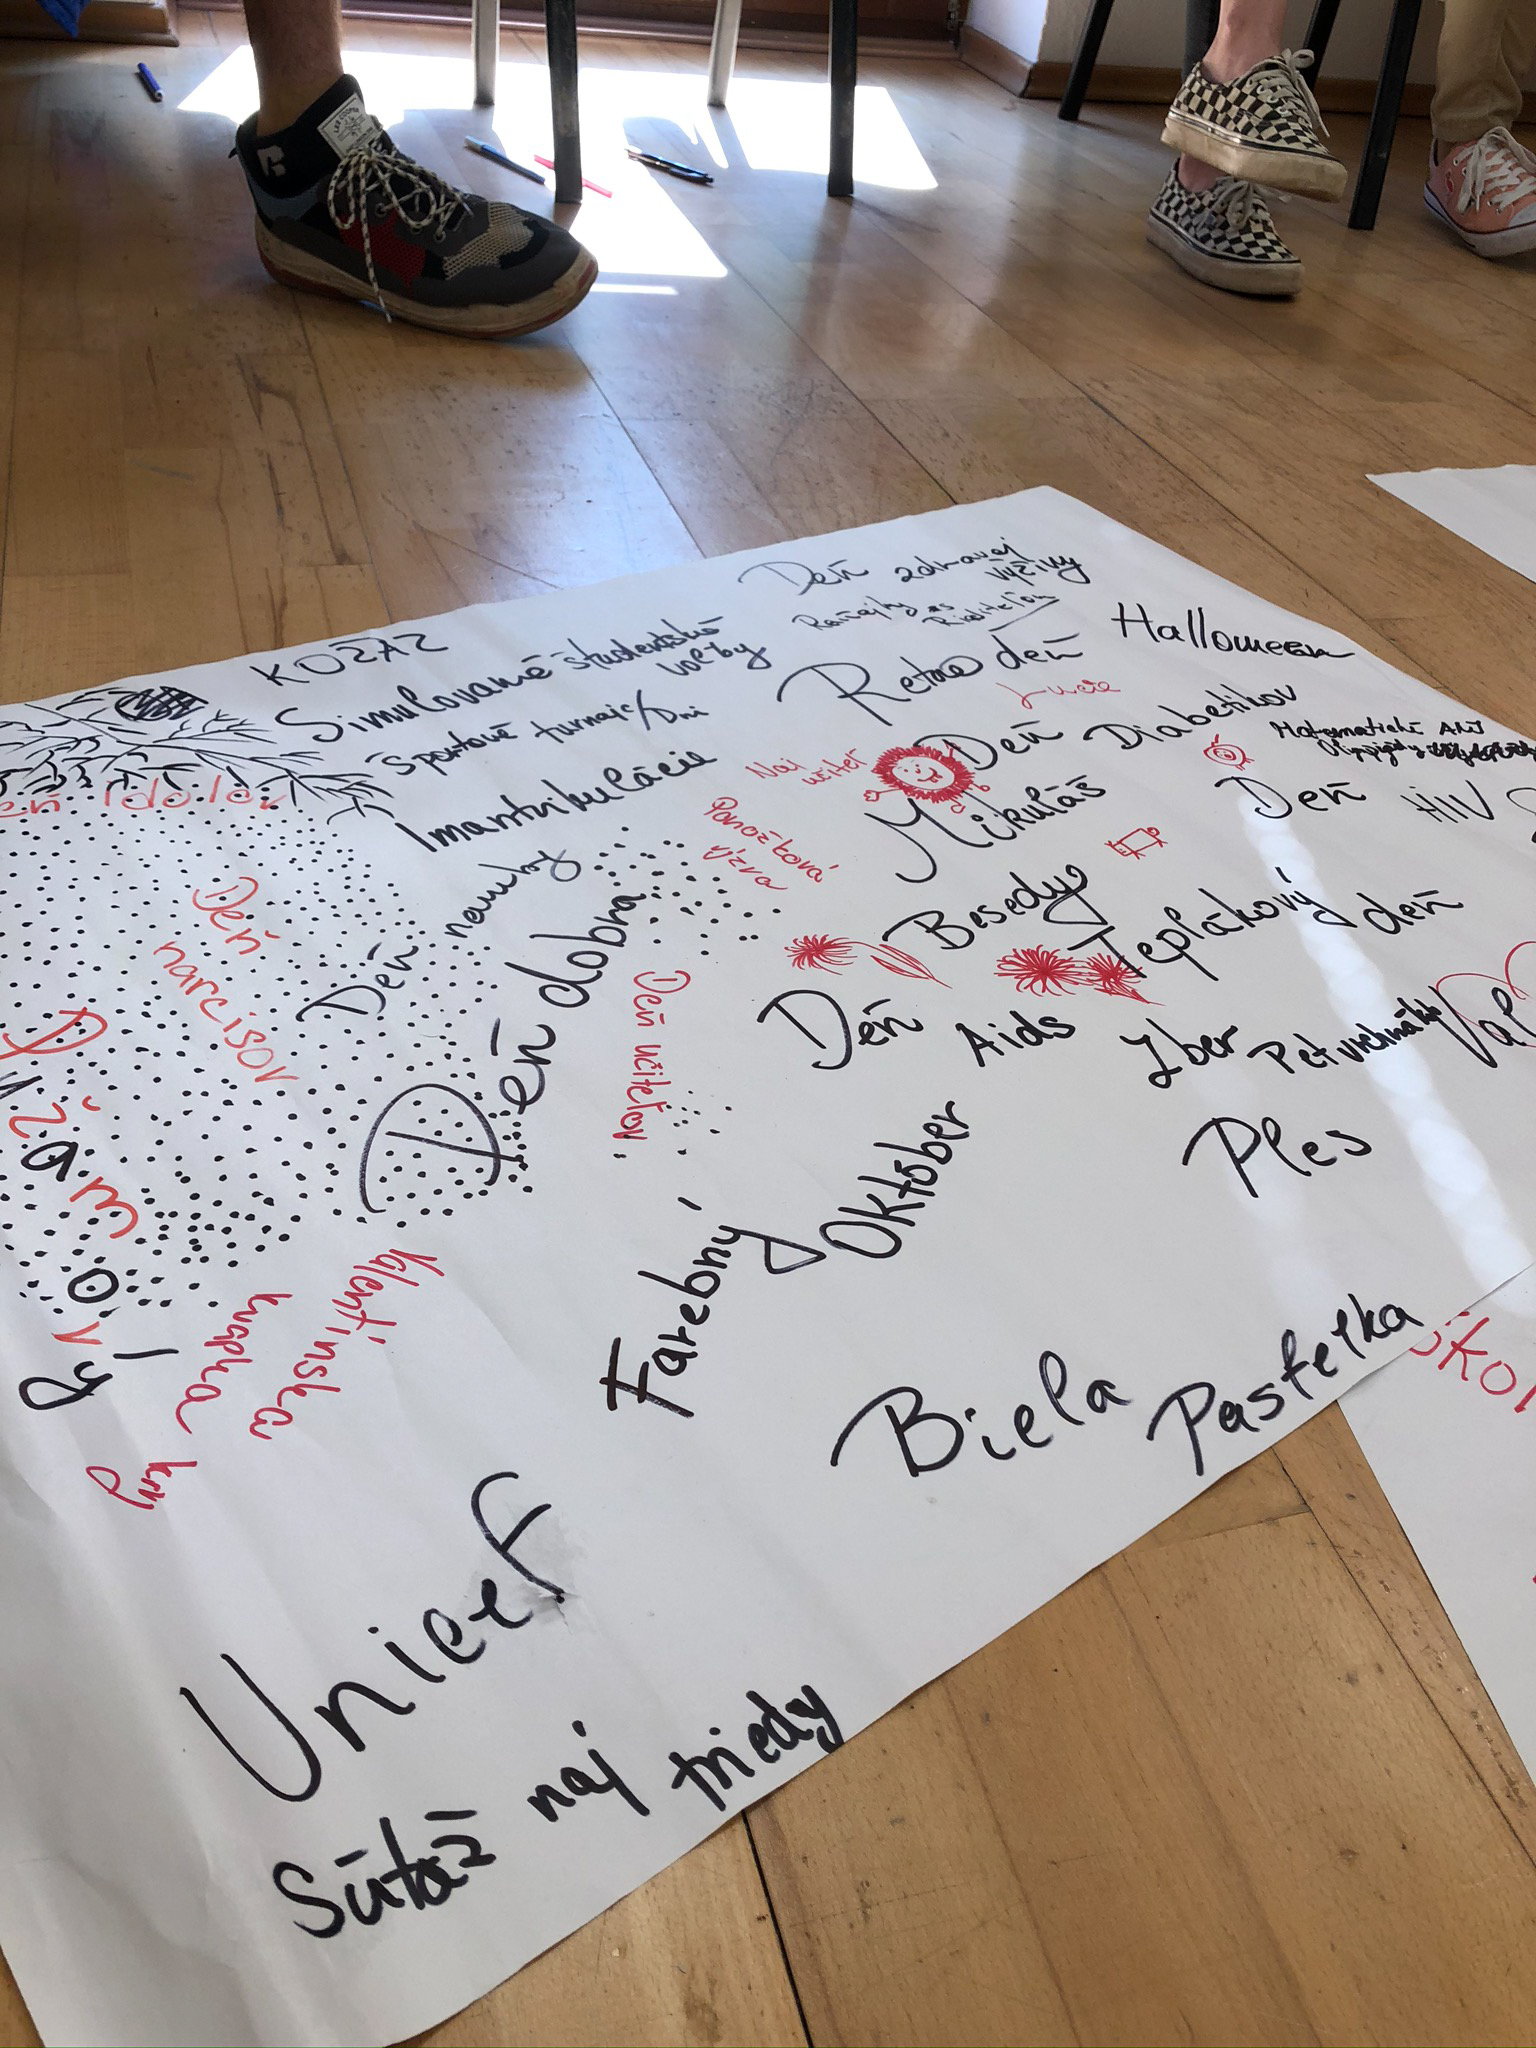 LEE COOPER
Deň zdravej
výživy
Raňajky s
Riaditeľom
KOŽAZ
Simulované študentské
voľby
Halloween
Retro deň
Športové turnaje/Dni
Deň Diabetikov
Matematické ANJ
Olympiády
Imatrikulácie
Naj
učiteľ
Deň Idolov
Mikuláš
Deň HIV
Ponožková
výzva
Deň nauky
Deň
narcisov
Besedy
Teplákový deň
Deň dobra
Deň učiteľov
Deň Aids
Zber Petvrchnákov
Val
Pyžamový
Október
Ples
Farebný
Valentínska
kvapka
krvy
Biela Pastelka
Škol
Unicef
Súťaž naj triedy